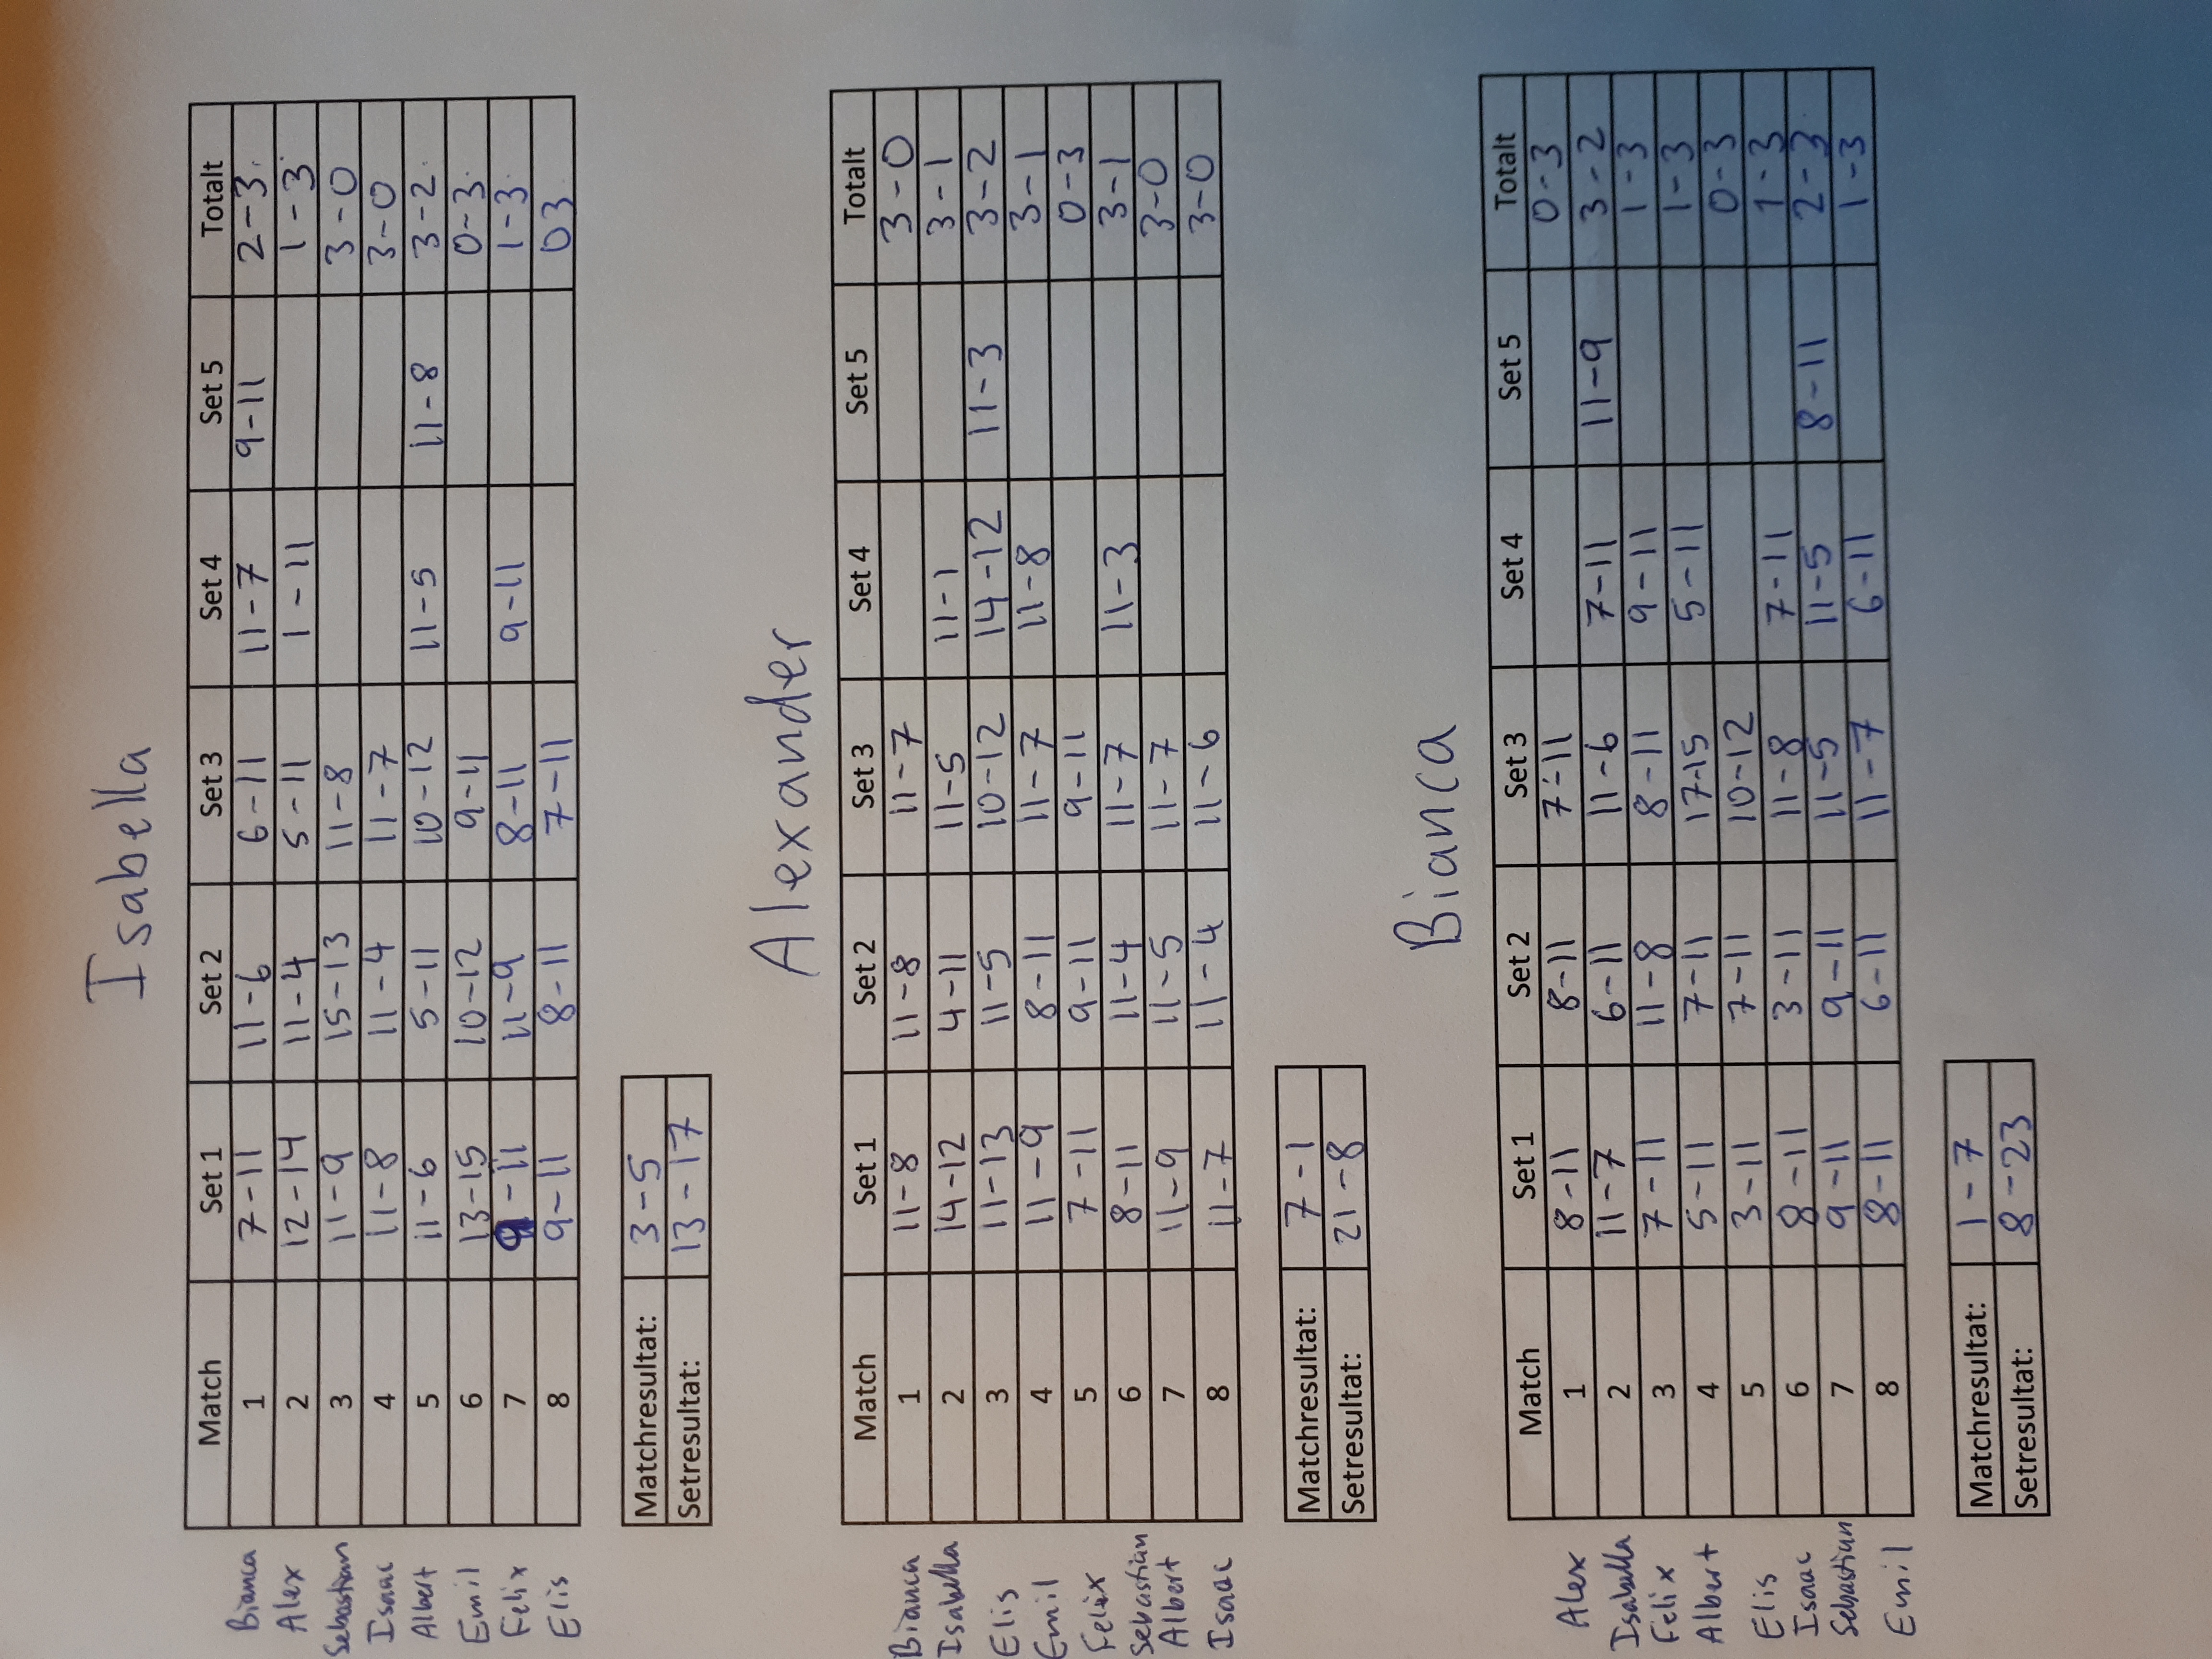 Isabella
Match Set 1 Set 2 Set 3 Set 4 Set 5 Totalt
Bianca 1 7-11 11-6 6-11 11-7 9-11 2-3
Alex 2 12-14 11-4 5-11 1-11 1-3
Sebastian 3 11-9 15-13 11-8 3-0
Isaac 4 11-8 11-4 11-7 3-0
Albert 5 11-6 5-11 10-12 11-5 11-8 3-2
Emil 6 13-15 10-12 9-11 0-3
Felix 7 9-11 11-9 8-11 9-11 1-3
Elis 8 9-11 8-11 7-11 03
Matchresultat: 3-5
Setresultat: 13-17
Alexander
Match Set 1 Set 2 Set 3 Set 4 Set 5 Totalt
Bianca 1 11-8 11-8 11-7 3-0
Isabella 2 14-12 4-11 11-5 11-1 3-1
Elis 3 11-13 11-5 10-12 14-12 11-3 3-2
Emil 4 11-9 8-11 11-7 11-8 3-1
Felix 5 7-11 9-11 9-11 0-3
Sebastian 6 8-11 11-4 11-7 11-3 3-1
Albert 7 11-9 11-5 11-7 3-0
Isaac 8 11-7 11-4 11-6 3-0
Matchresultat: 7-1
Setresultat: 21-8
Bianca
Match Set 1 Set 2 Set 3 Set 4 Set 5 Totalt
Alex 1 8-11 8-11 7-11 0-3
Isabella 2 11-7 6-11 11-6 7-11 11-9 3-2
Felix 3 7-11 11-8 8-11 9-11 1-3
Albert 4 5-11 7-11 17-15 5-11 1-3
Elis 5 3-11 7-11 10-12 0-3
Isaac 6 8-11 3-11 11-8 7-11 1-3
Sebastian 7 9-11 9-11 11-5 11-5 8-11 2-3
Emil 8 8-11 6-11 11-7 6-11 1-3
Matchresultat: 1-7
Setresultat: 8-23